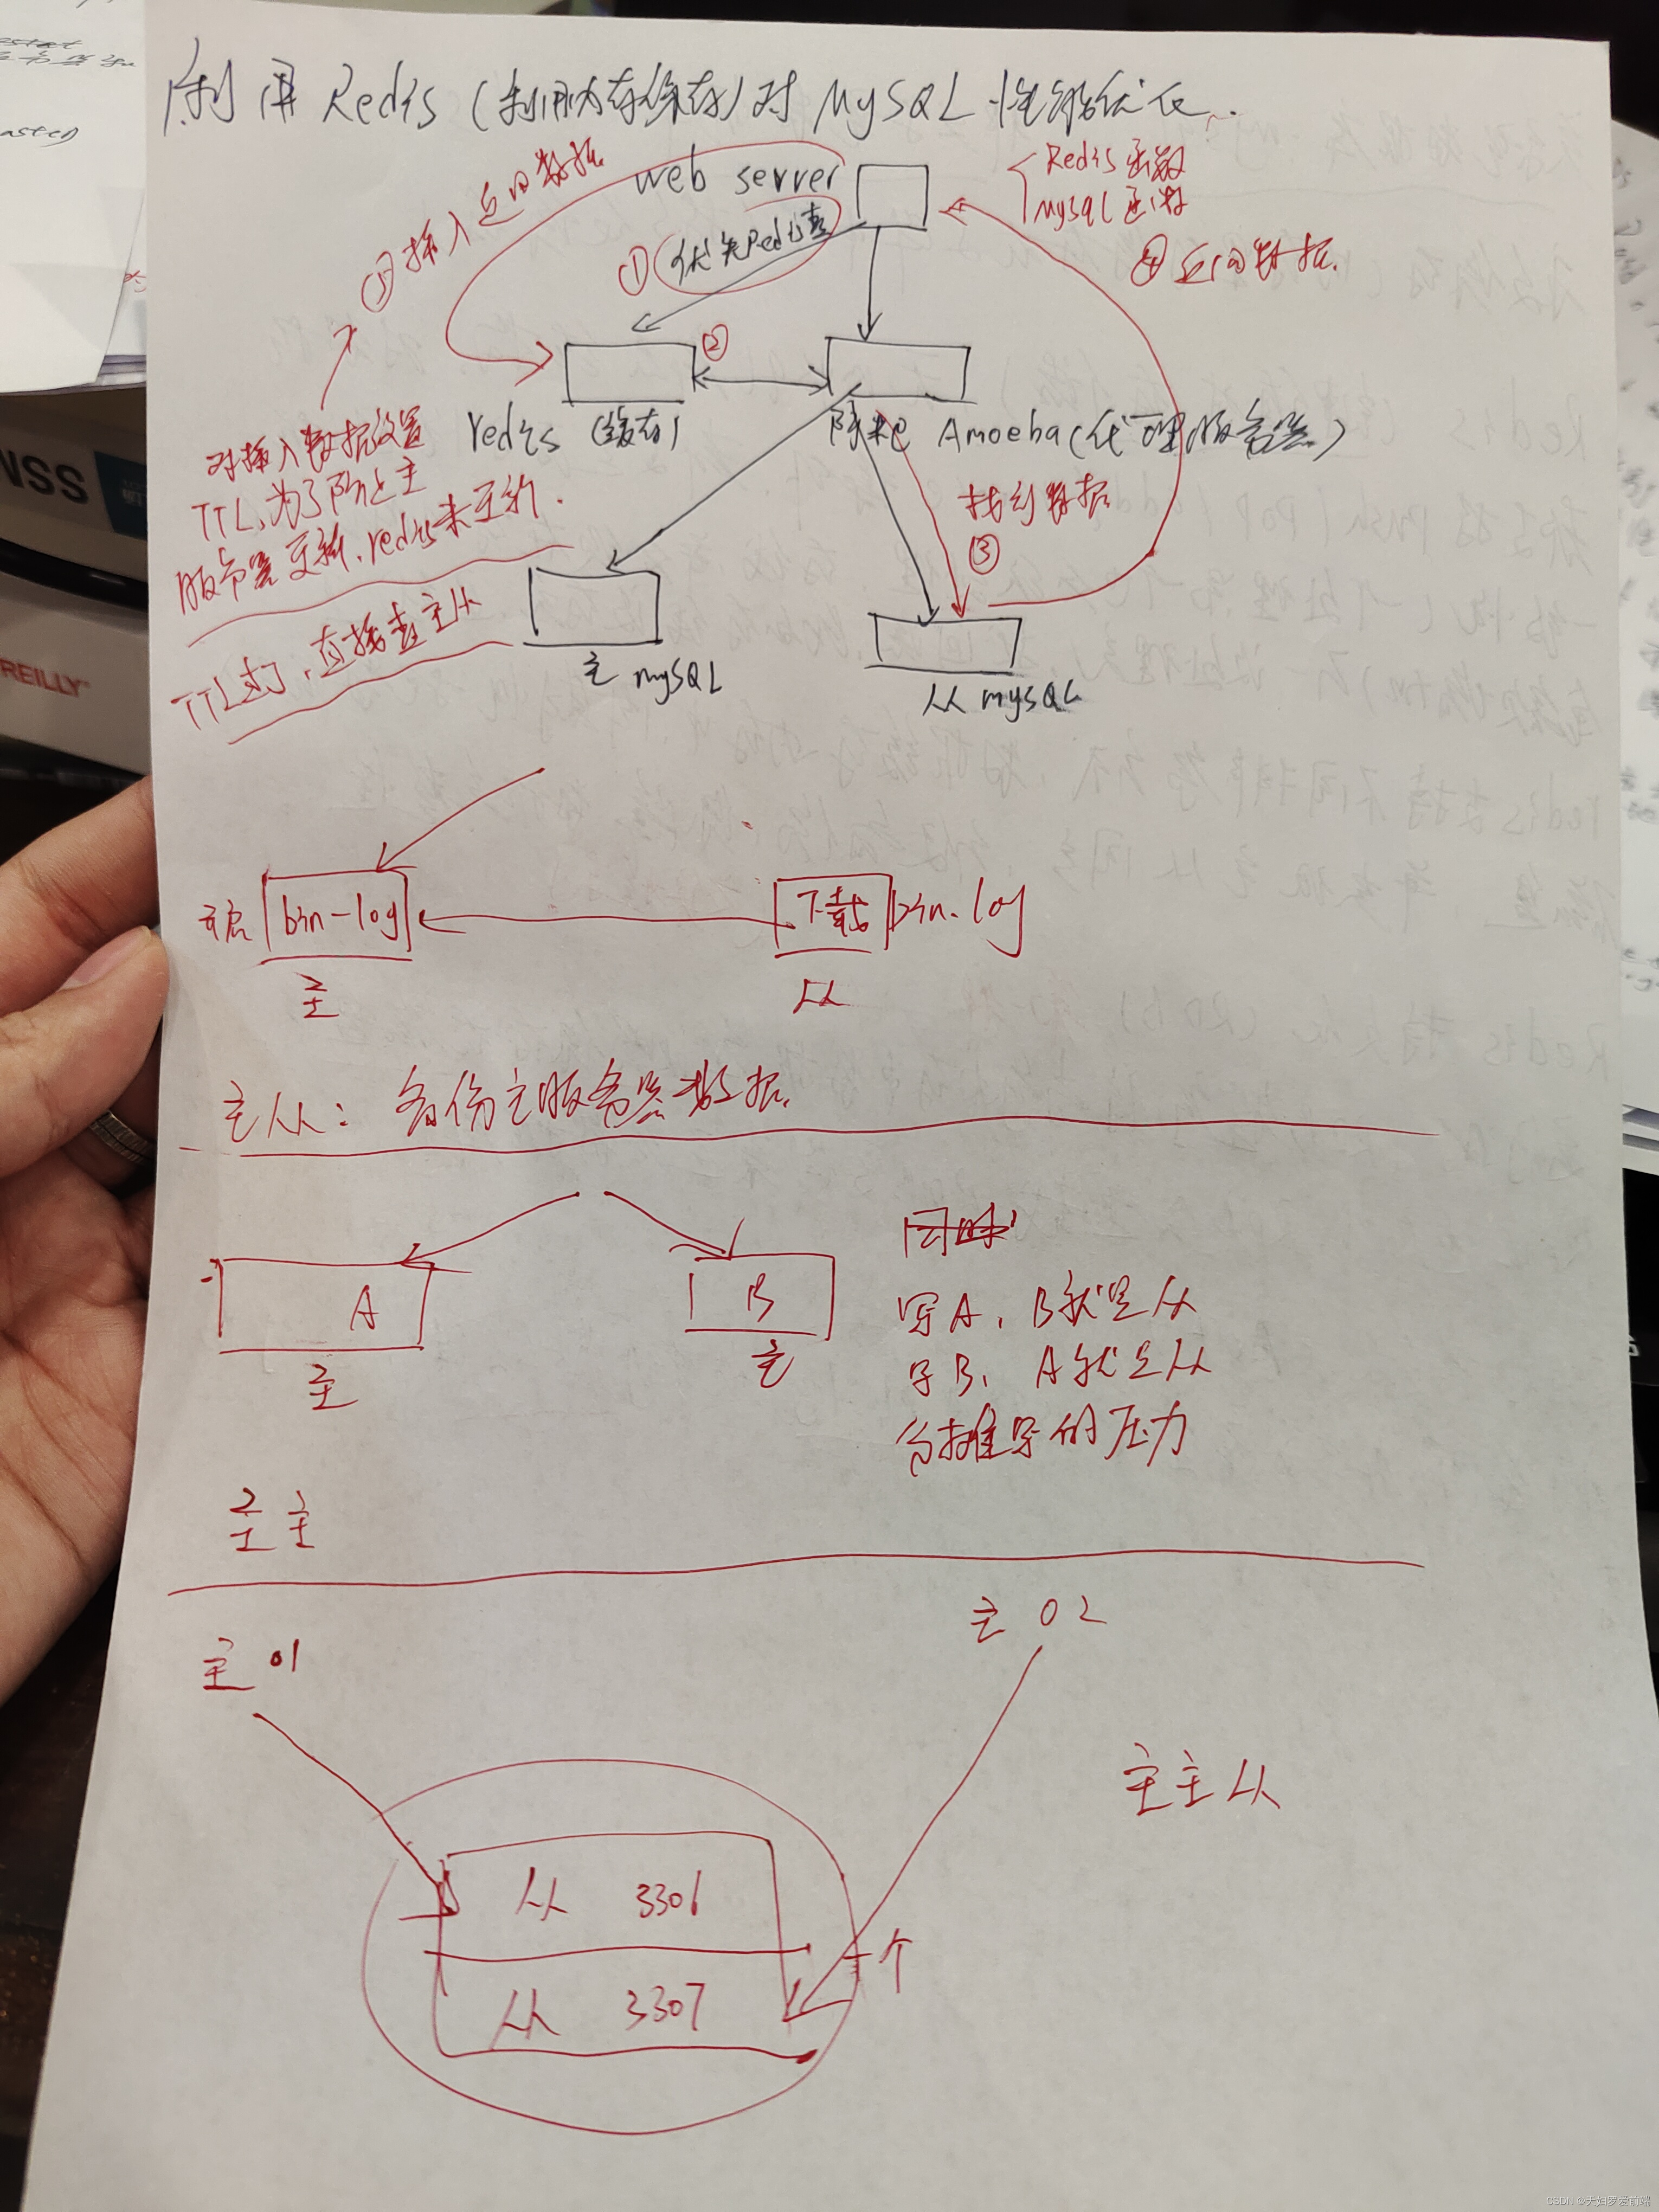 利用 Redis (利用内存缓存) 对 MySQL 性能优化.
web server
Redis 函数
Mysql 函数
③ 插入返回数据
① 优先Redis查
④ 返回数据.
②
redis (缓存)
阿米巴 Amoeba (代理服务器)
对插入数据设置
TTL, 为了防止主
服务器更新, redis未更新.
找到数据
③
TTL过了, 直接查主从
主 mySQL
从 mySQL
bin-log
下载 bin-log
主
从
主从: 备份主服务器数据.
同时
A
B
写A, B就是从
主
主
写B, A就是从
分摊写的压力
主主
主 01
主 02
主主从
从 3306
从 3307
一个
NSS
REILLY
CSDN @天妇罗爱前端